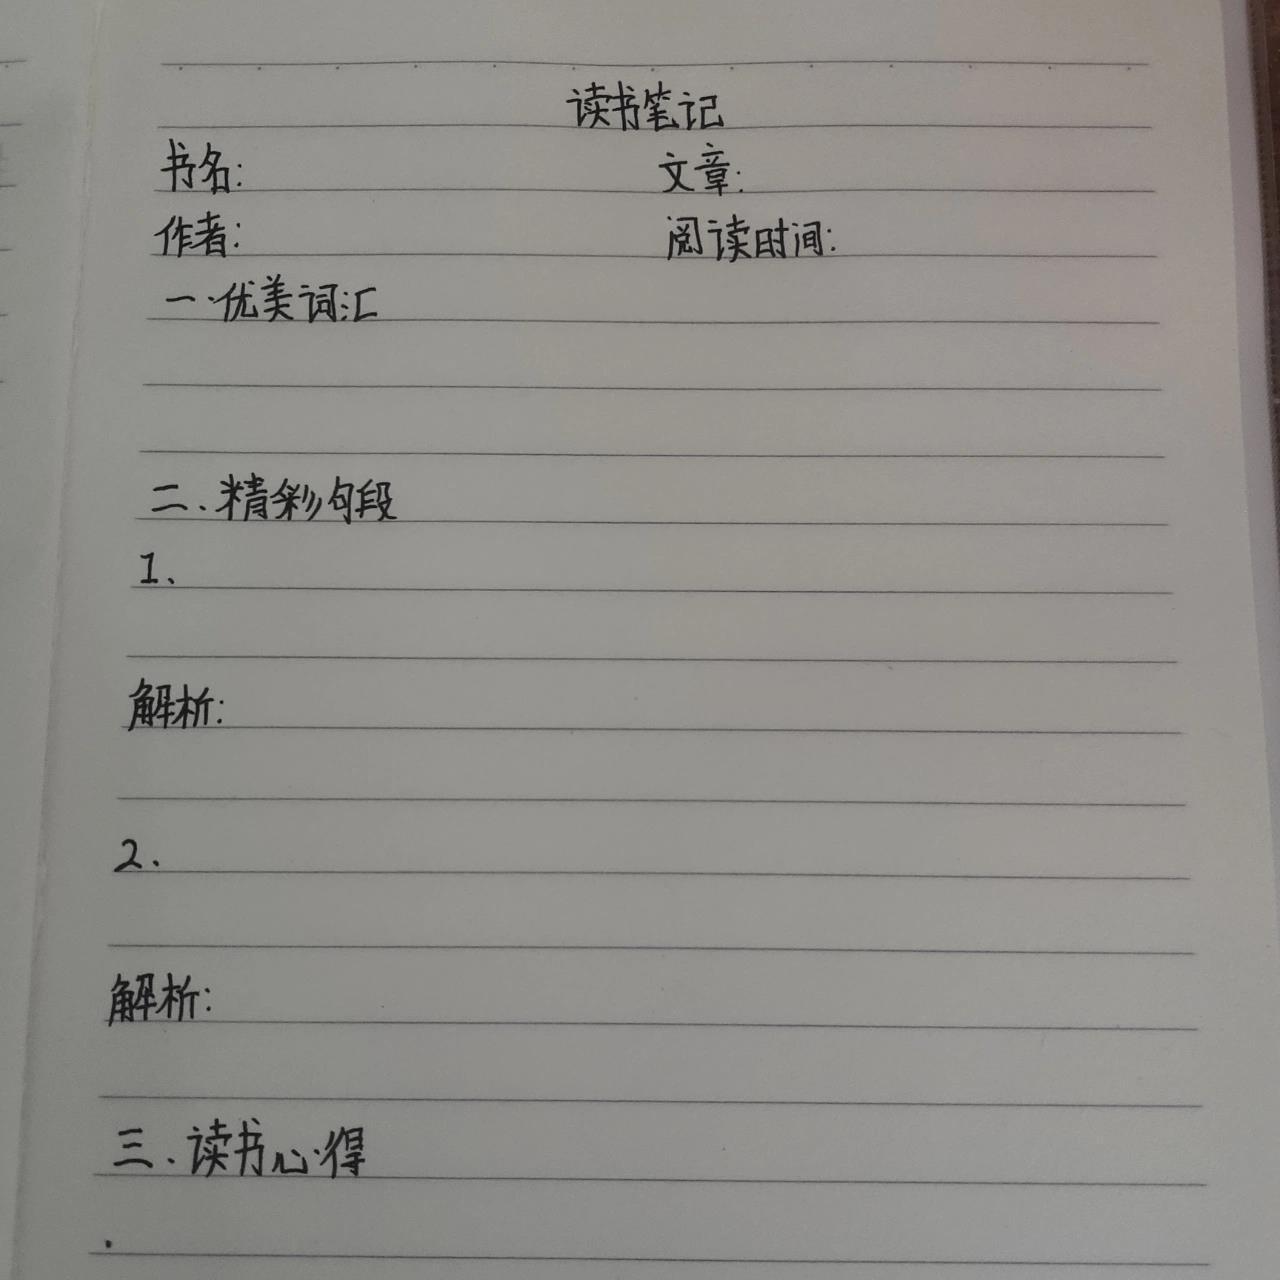 读书笔记
书名: 文章:
作者: 阅读时间:
一.优美词汇
二.精彩句段
1.
解析:
2.
解析:
三.读书心得